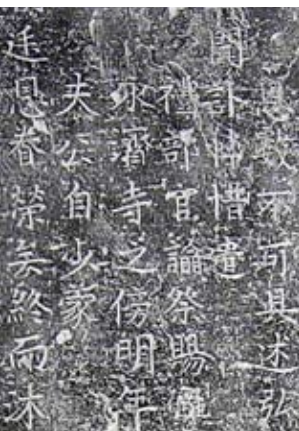 恩數不可具述弘
聞訃悼惜遣
禮部官諭祭賜
永濟寺之傍明年
夫公自少蒙
廷恩眷榮矣終而沐